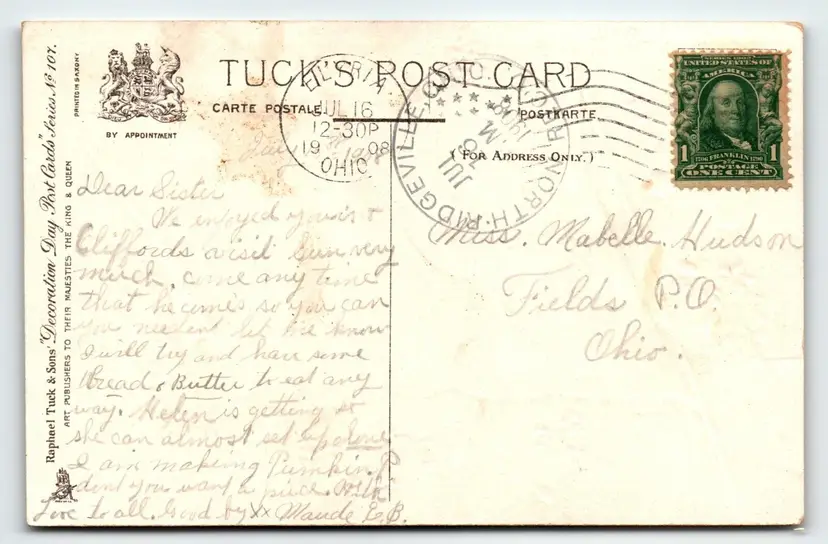 TUCK'S POST CARD
CARTE POSTALE
POSTKARTE
( FOR ADDRESS ONLY. )
BY APPOINTMENT
PRINTED IN SAXONY
Raphael Tuck & Sons' "Decoration Day Post Cards" Series No 107.
ART PUBLISHERS TO THEIR MAJESTIES THE KING & QUEEN
JUL 16
12-30P
19 08
OHIO
NORTH RIDGEVILLE
JUL
UNITED STATES OF
AMERICA
1 1706 FRANKLIN 1790 1
POSTAGE
ONE CENT
Dear Sister
We enjoyed yours &
Cliffords visit Sun very
much. come any time
that he comes so you can
you needent let me know
I will try and have some
Bread & Butter to eat any
way. Helen is getting so
she can almost set up alone
I am making Pumkin P
dont you want a piece. With
Love to all. Good by xx Maude E. B.
Miss. Mabelle. Hudson
Fields P.O.
Ohio.